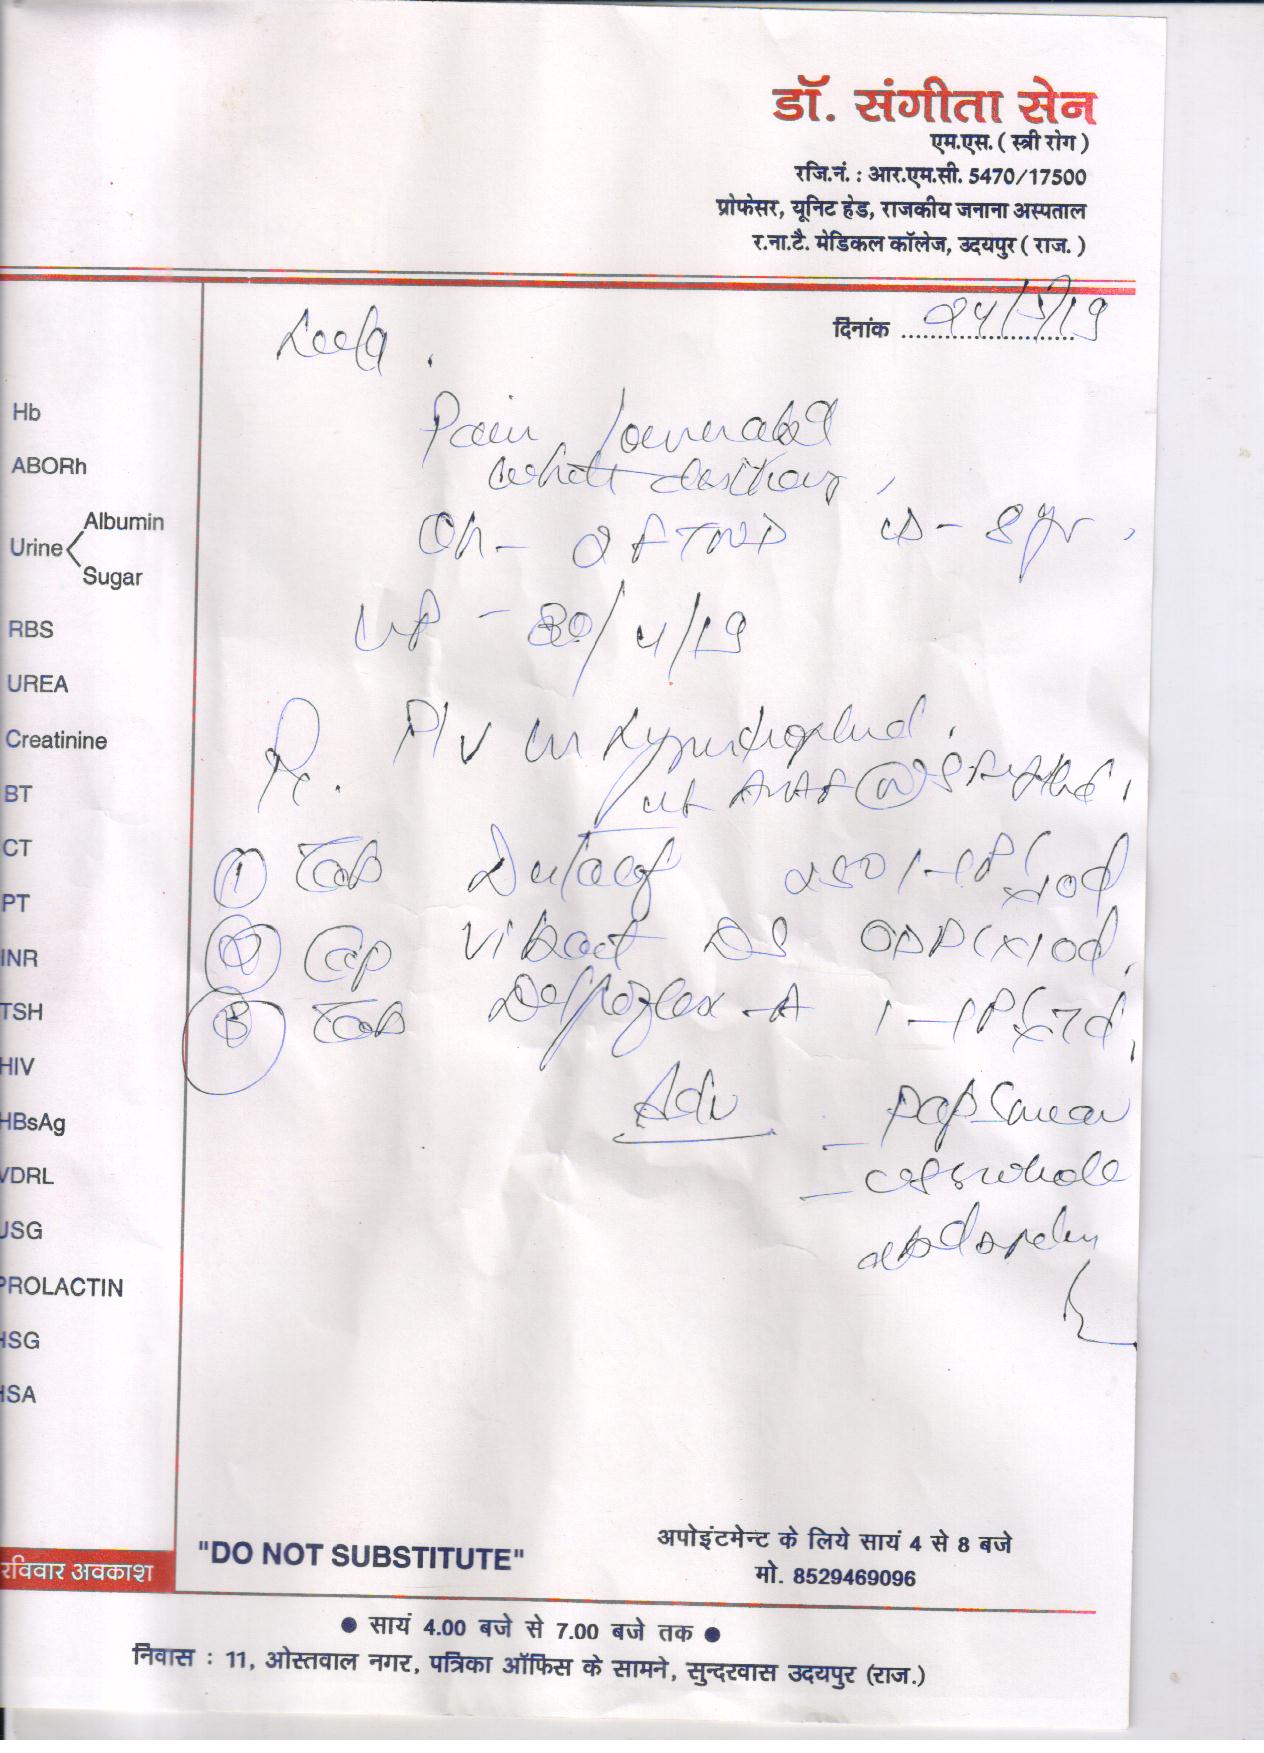 डॉ. संगीता सेन
एम.एस. ( स्त्री रोग )
रजि.नं. : आर.एम.सी. 5470/17500
प्रोफेसर, यूनिट हेड, राजकीय जनाना अस्पताल
र.ना.टै. मेडिकल कॉलेज, उदयपुर ( राज. )
दिनांक 24/5/19
Leela
Pain lower abd
white discharge,
OH- 2 FTND LD - 8 yr,
LMP - 30/4/19
P/V Cx hypertrophied.
Rx.
ut AVAF (N) S
① Tab 250 1-1 PC x 10d
② Cap Vibact DS OD PC x 10d,
③ Tab -A 1-1 PC x 7d,
Adv - Pap Smear
- USG whole
abdomen
Hb
ABORh
Albumin
Urine
Sugar
RBS
UREA
Creatinine
BT
CT
PT
INR
TSH
HIV
HBsAg
VDRL
USG
PROLACTIN
HSG
HSA
रविवार अवकाश
"DO NOT SUBSTITUTE"
अपोइंटमेन्ट के लिये सायं 4 से 8 बजे
मो. 8529469096
● सायं 4.00 बजे से 7.00 बजे तक ●
निवास : 11, ओस्तवाल नगर, पत्रिका ऑफिस के सामने, सुन्दरवास उदयपुर (राज.)